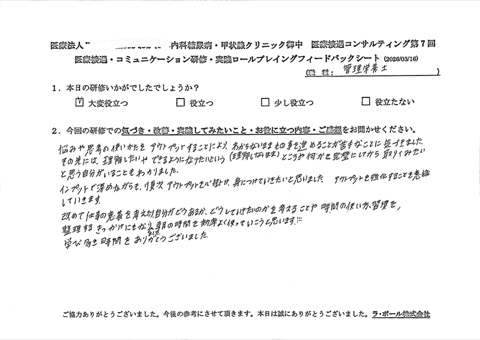 医療法人 内科糖尿病・甲状腺クリニック御中 医療接遇コンサルティング第7回
医療接遇・コミュニケーション研修・実践ロールプレイングフィードバックシート (2026/03/16)
(職種: 管理栄養士)
1. 本日の研修いかがでしたでしょうか?
大変役立つ 役立つ 少し役立つ 役立たない
2. 今回の研修での気づき・改善・実践してみたいこと・お役に立つ内容・ご感想をお聞かせください。
悩みや思考の使いかたを アウトプットすることにより、わからないまま ものを進めることが苦手なことに 気づきました
その先には、理解したい や できるようになりたいという (理解しながら) どこか何かを 完璧にしてから 取りくみたい
と思う自分がいることもありました
インプットで深めながらも、順次 アウトプットを心掛け、身につけていきたいと思いました アウトプットを強化することを意識
していきます
改めて 仕事の意義を考え 自分がどうあるか、どうしていきたいのかを 考えることや 時間の使い方、習慣を、
整理する きっかけにもなり、朝の時間を 効率よく使っていこうと思います
学びある時間を ありがとうございました
ご協力ありがとうございました。今後の参考にさせて頂きます。本日は誠にありがとうございました。 ラ・ポール株式会社